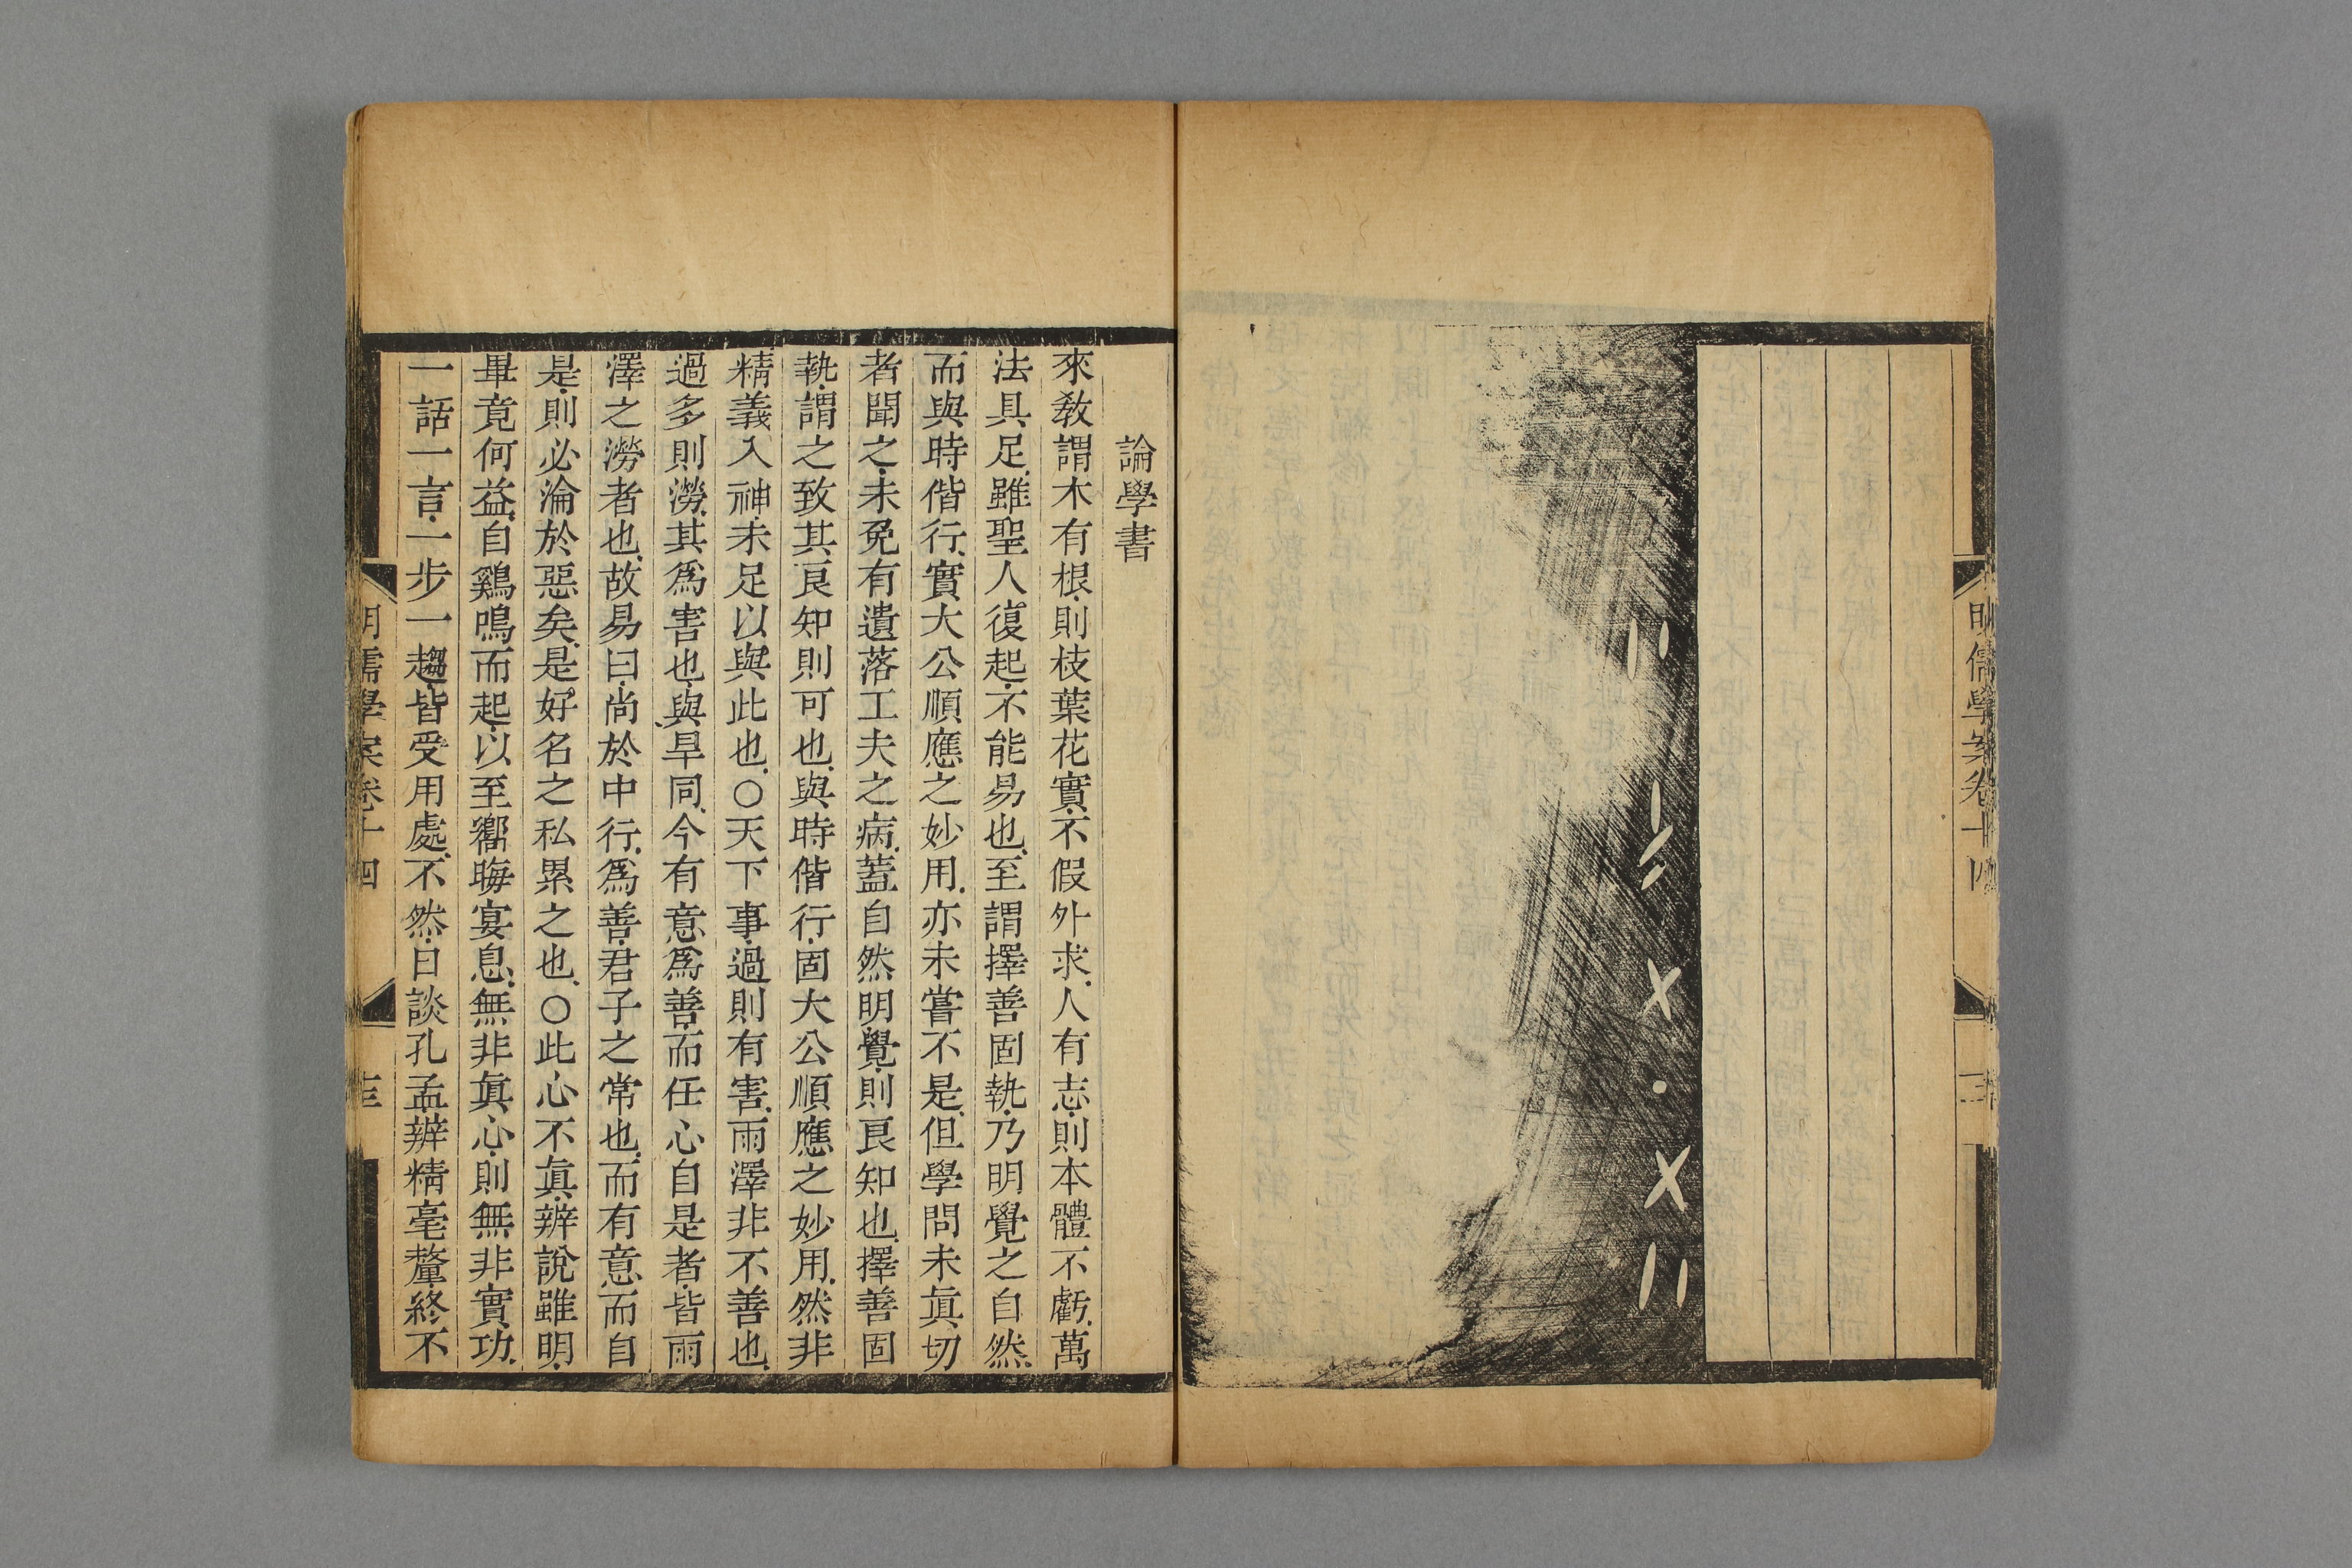 明儒學案卷十四
論學書
來教謂木有根則枝葉花實不假外求人有志則本體不虧萬
法具足雖聖人復起不能易也至謂擇善固執乃明覺之自然
而與時偕行實大公順應之妙用亦未嘗不是但學問未眞切
者聞之未免有遺落工夫之病蓋自然明覺則良知也擇善固
執謂之致其良知則可也與時偕行固大公順應之妙用然非
精義入神未足以與此也○天下事過則有害雨澤非不善也
過多則澇其爲害也與旱同今有意爲善而任心自是者皆雨
澤之澇者也故易曰尚於中行爲善君子之常也而有意而自
是則必淪於惡矣是好名之私累之也○此心不眞辨說雖明
畢竟何益自鷄鳴而起以至嚮晦宴息無非眞心則無非實功
一話一言一步一趨皆受用處不然日談孔孟辨精毫釐終不
明儒學案卷十四